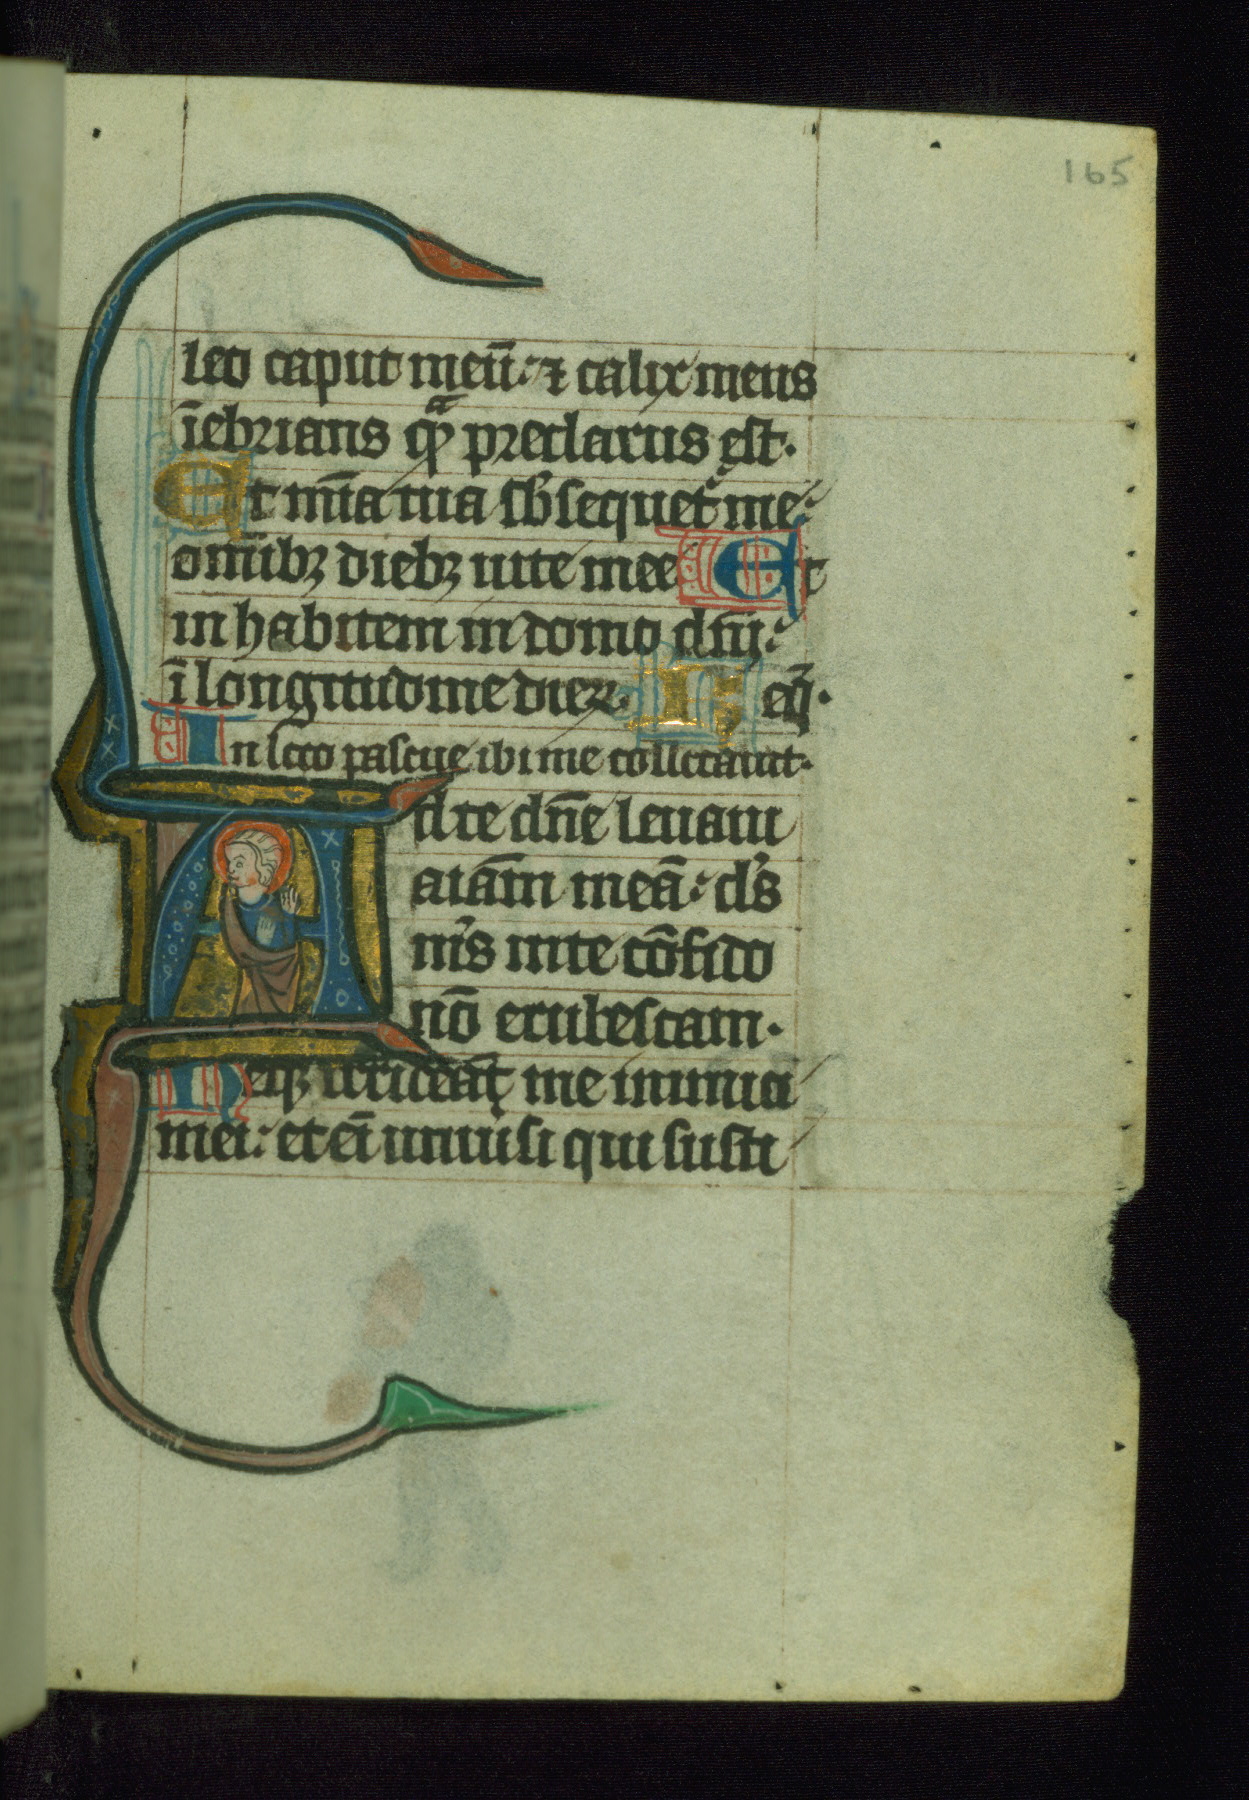 165
leo caput meū: ⁊ calix meus
īebrians qͣ̄ preclarus est.
Et mīa tua sb̓sequet᷑ me:
omībꝫ diebꝫ uite mee Et
in habitem in domo dn̄i:
ī longitudine dieꝝ. Req̄.
In loco pascue ibi me collocauit.
Ad te dn̄e leuaui
aīam meā: ds̓
ms̓ in te cōfido
nō erubescam.
Neqꝫ irrideāt me inimici
mei: et eī uniūsi qui susti